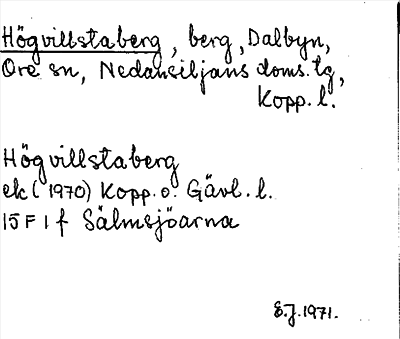 Högvillstaberg, berg, Dalbyn,
Ore sn, Nedansiljans doms. tg,
Kopp. l.
Högvillstaberg
ek (1970) Kopp. o. Gävl. l.
15 F 1 f Sälmsjöarna
E.J. 1971.